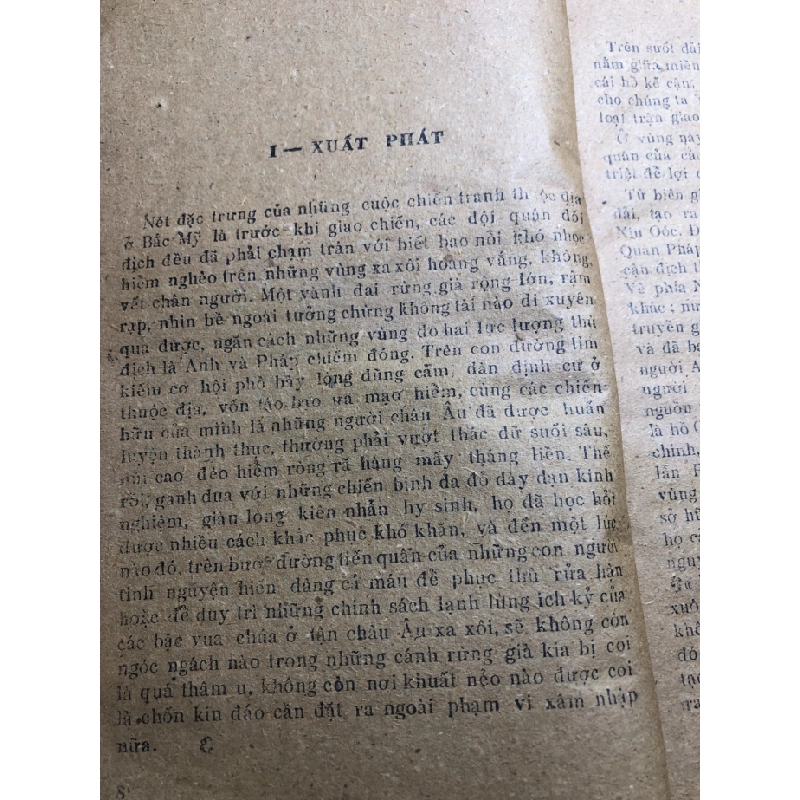 I — XUẤT PHÁT
Nét đặc trưng của những cuộc chiến tranh thuộc địa
ở Bắc Mỹ là trước khi giao chiến, các đội quân đối
địch đều đã phải chạm trán với biết bao nỗi khó nhọc
hiểm nghèo trên những vùng xa xôi hoang vắng, không
vết chân người. Một vành đai rừng già rộng lớn, rậm
rạp, nhìn bề ngoài tưởng chừng không tài nào đi xuyên
qua được, ngăn cách những vùng do hai lực lượng thù
địch là Anh và Pháp chiếm đóng. Trên con đường tìm
kiếm cơ hội phô bày lòng dũng cảm, dân định cư ở
thuộc địa, vốn táo bạo ưa mạo hiểm, cùng các chiến
hữu của mình là những người châu Âu đã được huấn
luyện thành thục, thường phải vượt thác dữ suối sâu,
núi cao đèo hiểm ròng rã hàng mấy tháng liền. Thế
rồi, ganh đua với những chiến binh da đỏ dày dạn kinh
nghiệm, giàu lòng kiên nhẫn hy sinh, họ đã học hỏi
được nhiều cách khắc phục khó khăn, và đến một lúc
nào đó, trên bước đường tiến quân của những con người
tình nguyện hiến dâng cả máu để phục thù rửa hận
hoặc để duy trì những chính sách lạnh lùng ích kỷ của
các bậc vua chúa ở tận châu Âu xa xôi, sẽ không còn
ngóc ngách nào trong những cánh rừng già kia bị coi
là quá thâm u, không còn nơi khuất nẻo nào được coi
là chốn kín đáo cần đặt ra ngoài phạm vi xâm nhập
nữa.
8
Trên suốt dải
nằm giữa miền
cái hồ kế cận,
cho chúng ta
loại trận giao
Ở vùng này
quân của các
triệt để lợi
Từ biên gi
dài, tạo ra
Niu Oóc. Đ
Quân Pháp
cận địch t
Về phía N
khác; nư
truyền g
và đã b
người A
người
nguồn
là hồ
chinh,
lần
vùng
sở hữ
họ c
nguy
xuô
khô
đó
tạo
ra